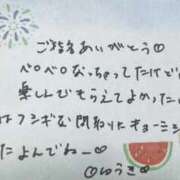 ご指名ありがとう♡
ベロベロなっちゃってたけど
楽しんでもらえてよかった
はフシギな関わりにキョーミシ
たよんでねー♡
♡ゆうき♡